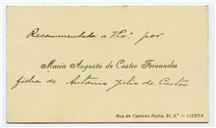 Recommendada a V.Exª. por
Maria Augusta de Castro Fernandes
filha de Antonio Julio de Castro
Rua de Castelo Picão, 31, 3.º — LISBOA